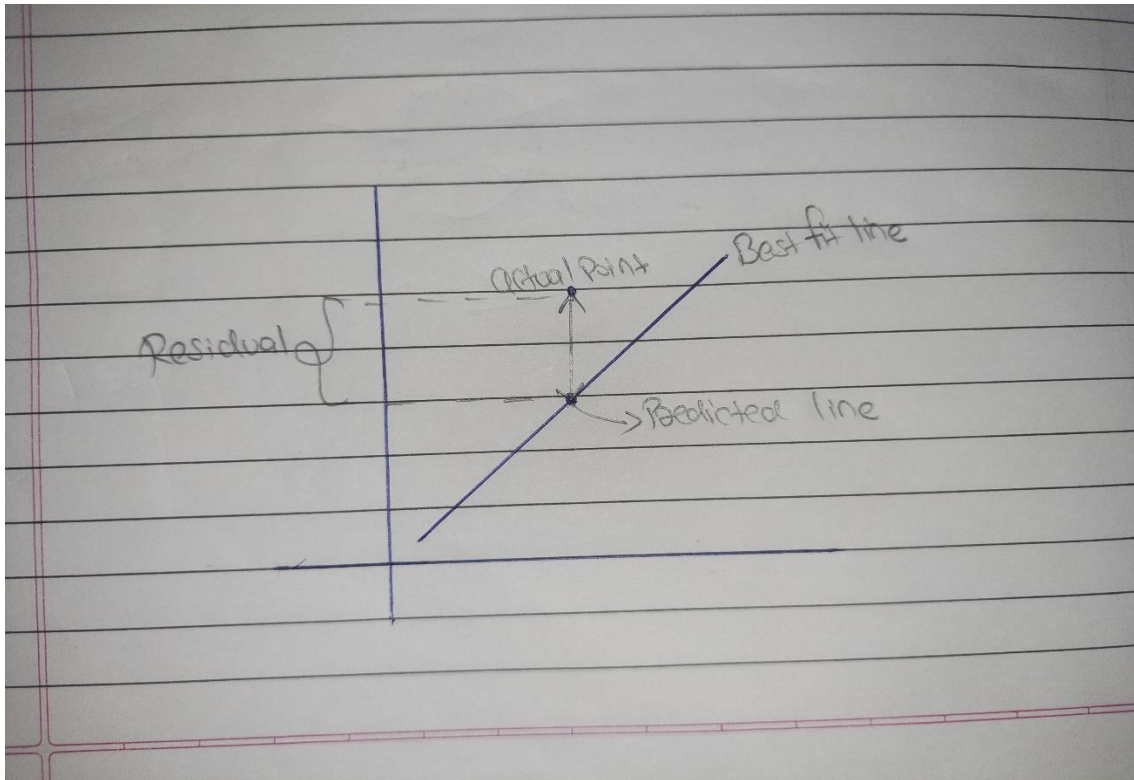 Best fit line
actual Point
Residual
Predicted line